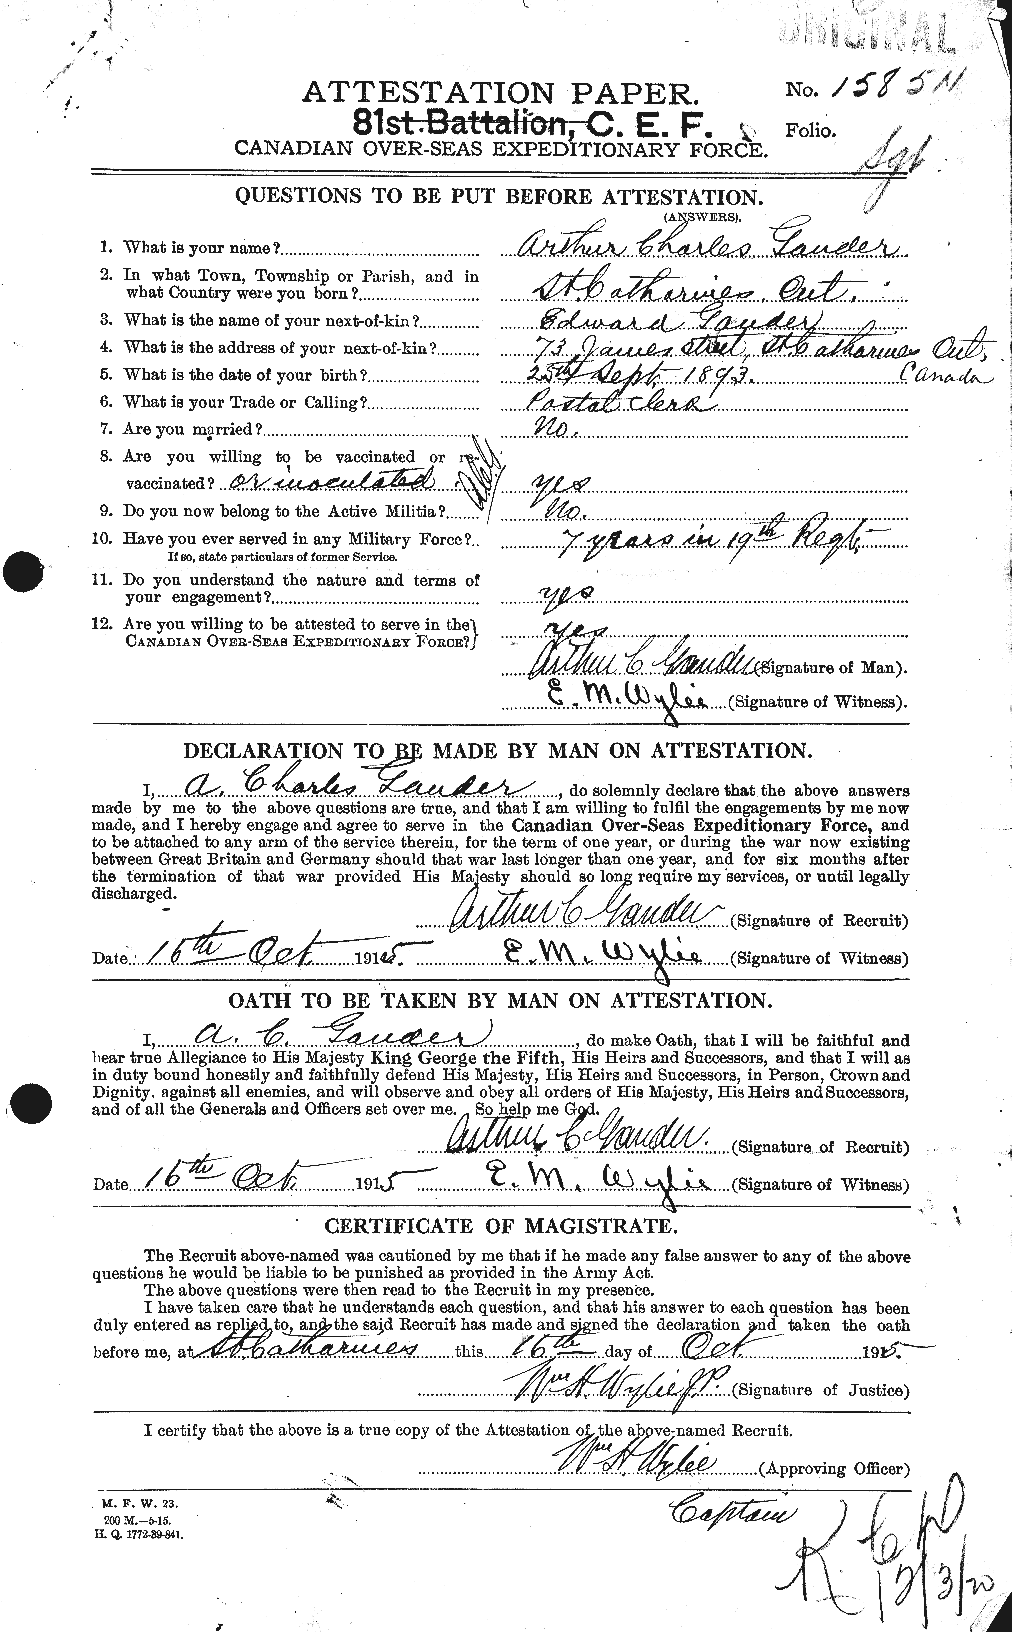 ORIGINAL
ATTESTATION PAPER.
No. 158511
81st. Battalion, C. E. F.
Folio.
CANADIAN OVER-SEAS EXPEDITIONARY FORCE.
Sgt
QUESTIONS TO BE PUT BEFORE ATTESTATION.
(ANSWERS).
1. What is your name? Arthur Charles Gander
2. In what Town, Township or Parish, and in
what Country were you born? St. Catharines Ont.
3. What is the name of your next-of-kin? Edward Gander
4. What is the address of your next-of-kin? 73 James Street, St Catharines Ont,
5. What is the date of your birth? 25th Sept. 1893. Canada
6. What is your Trade or Calling? Postal Clerk
7. Are you married? No.
8. Are you willing to be vaccinated or re-
vaccinated? or inoculated yes
9. Do you now belong to the Active Militia? No.
10. Have you ever served in any Military Force? 7 years in 19th Regt.
If so, state particulars of former Service.
11. Do you understand the nature and terms of
your engagement? yes
12. Are you willing to be attested to serve in the
CANADIAN OVER-SEAS EXPEDITIONARY FORCE? yes
Arthur C Gander (Signature of Man).
E. M. Wylie (Signature of Witness).
DECLARATION TO BE MADE BY MAN ON ATTESTATION.
I, A. Charles Gander, do solemnly declare that the above answers
made by me to the above questions are true, and that I am willing to fulfil the engagements by me now
made, and I hereby engage and agree to serve in the Canadian Over-Seas Expeditionary Force, and
to be attached to any arm of the service therein, for the term of one year, or during the war now existing
between Great Britain and Germany should that war last longer than one year, and for six months after
the termination of that war provided His Majesty should so long require my services, or until legally
discharged.
Arthur C Gander (Signature of Recruit)
Date 16th Oct 1915. E. M. Wylie (Signature of Witness)
OATH TO BE TAKEN BY MAN ON ATTESTATION.
I, A. C. Gander, do make Oath, that I will be faithful and
bear true Allegiance to His Majesty King George the Fifth, His Heirs and Successors, and that I will as
in duty bound honestly and faithfully defend His Majesty, His Heirs and Successors, in Person, Crown and
Dignity, against all enemies, and will observe and obey all orders of His Majesty, His Heirs and Successors,
and of all the Generals and Officers set over me. So help me God.
Arthur C Gander. (Signature of Recruit)
Date 16th Oct. 1915 E. M. Wylie (Signature of Witness)
CERTIFICATE OF MAGISTRATE.
The Recruit above-named was cautioned by me that if he made any false answer to any of the above
questions he would be liable to be punished as provided in the Army Act.
The above questions were then read to the Recruit in my presence.
I have taken care that he understands each question, and that his answer to each question has been
duly entered as replied to, and the said Recruit has made and signed the declaration and taken the oath
before me, at St. Catharines this 16th day of Oct 1915.
Wm H. Wylie J.P. (Signature of Justice)
I certify that the above is a true copy of the Attestation of the above-named Recruit.
Wm H. Wylie (Approving Officer)
Captain
M. F. W. 23.
200 M.—5-15.
H. Q. 1772-39-841.